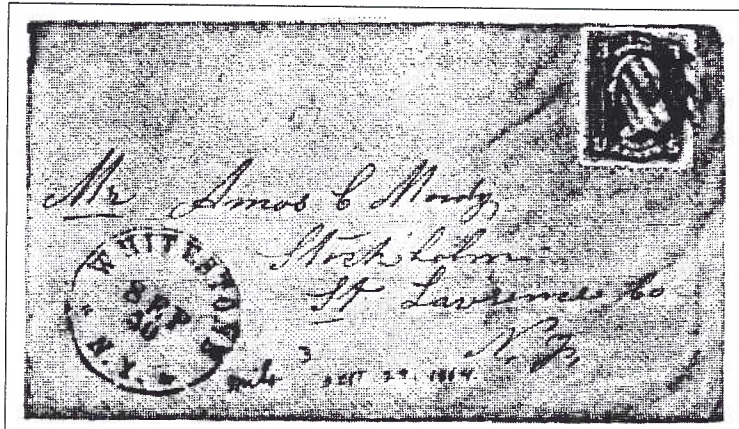 U S
Mr Amos C Moody
Stockholm
St Lawrence Co
N.Y.
WHITESTONE
SEP
30
N.Y.
3
SEPT 29. 1864